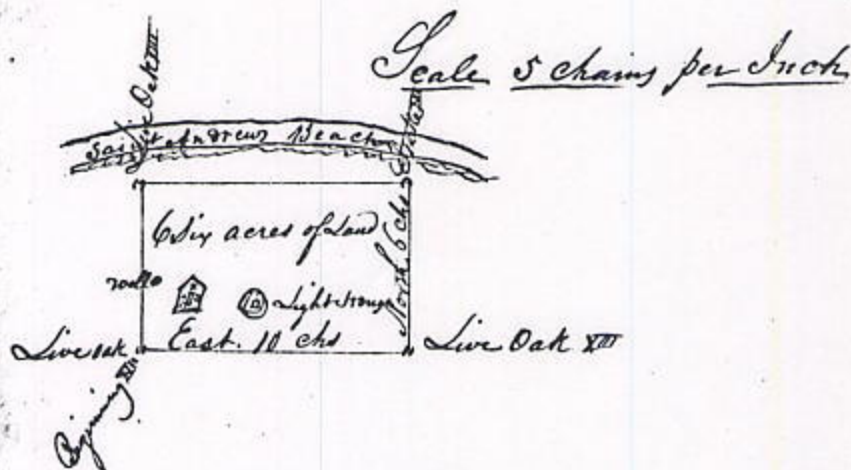 Scale 5 chains per Inch
Oak XIII
Saint Andrews Beach
6 Six acres of Land
North 6 chs
well
Light house
East. 10 chs
Live oak
Live Oak XIII
Beginning XIII